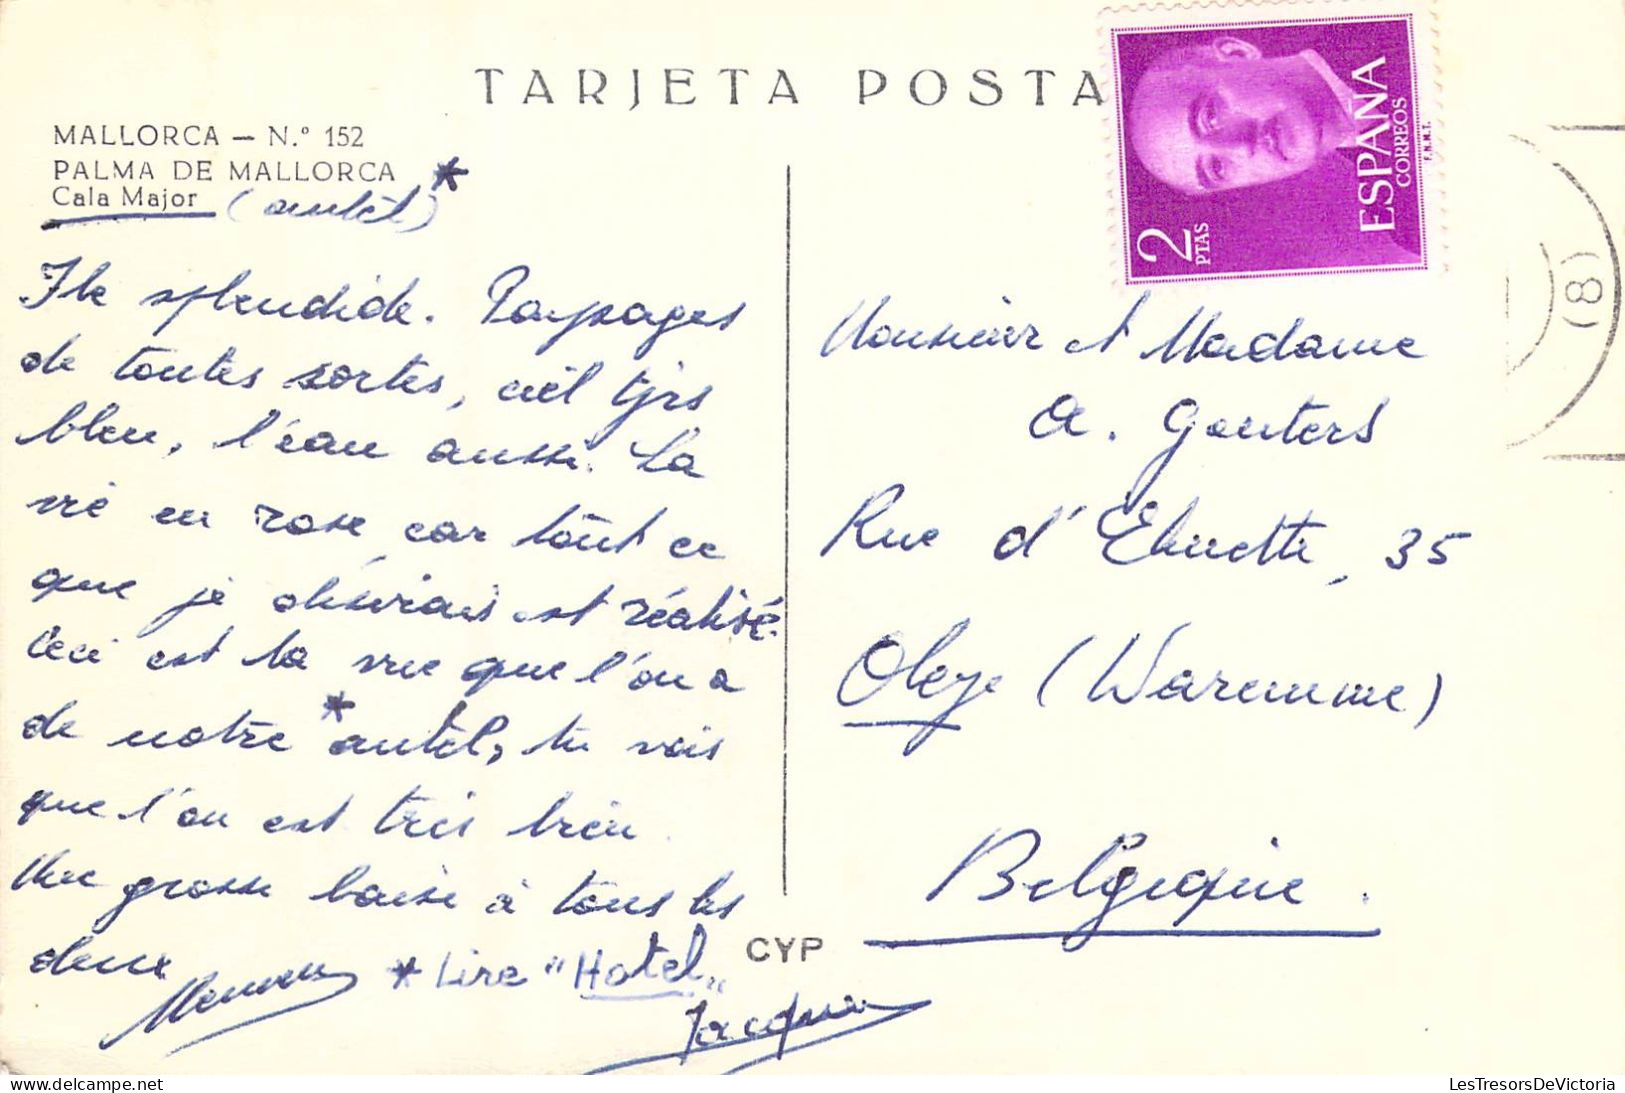 TARJETA POSTA
MALLORCA — N.º 152
PALMA DE MALLORCA *
Cala Major (autel)
Ile splendide. Paysages
de toutes sortes, ciel tjrs
bleu, l'eau aussi. La
vie en rose car tout ce
que je désirais est réalisé.
Ceci est la vue que l'on a
de notre * autel, tu vois
que l'on est très bien.
Une grosse baise à tous les
deux
* Lire "Hotel"
Jacques
CYP
2 PTAS
ESPAÑA
CORREOS
F.N.M.T.
(8)
Monsieur et Madame
A. Gouters
Rue d' 35
Oleye (Waremme)
Belgique.
LesTresorsDeVictoria